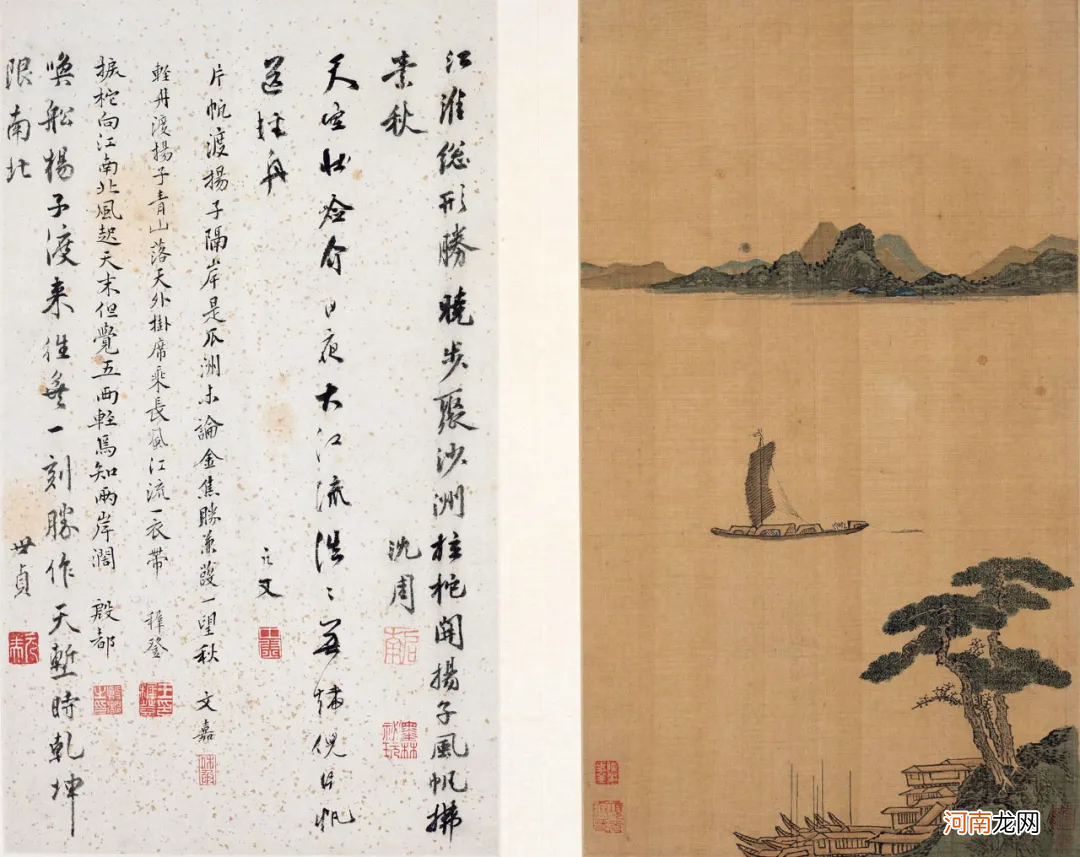 江淮緫形勝曉步聚沙洲拄柁開揚子風帆拂
素秋 沈周
天空 日夜大江流浩〻無端倪片帆
送輕舟
片帆渡揚子隔岸是瓜洲未論金焦勝蒹葭一望秋 文嘉
輕舟渡揚子青山落天外掛席乘長風江流一衣帶 穉登
捩柁向江南北風起天末但覺五兩輕焉知兩岸濶 殷都
喚船楊子渡来往無一刻勝作天塹時乾坤
限南北 世貞
河南龙网